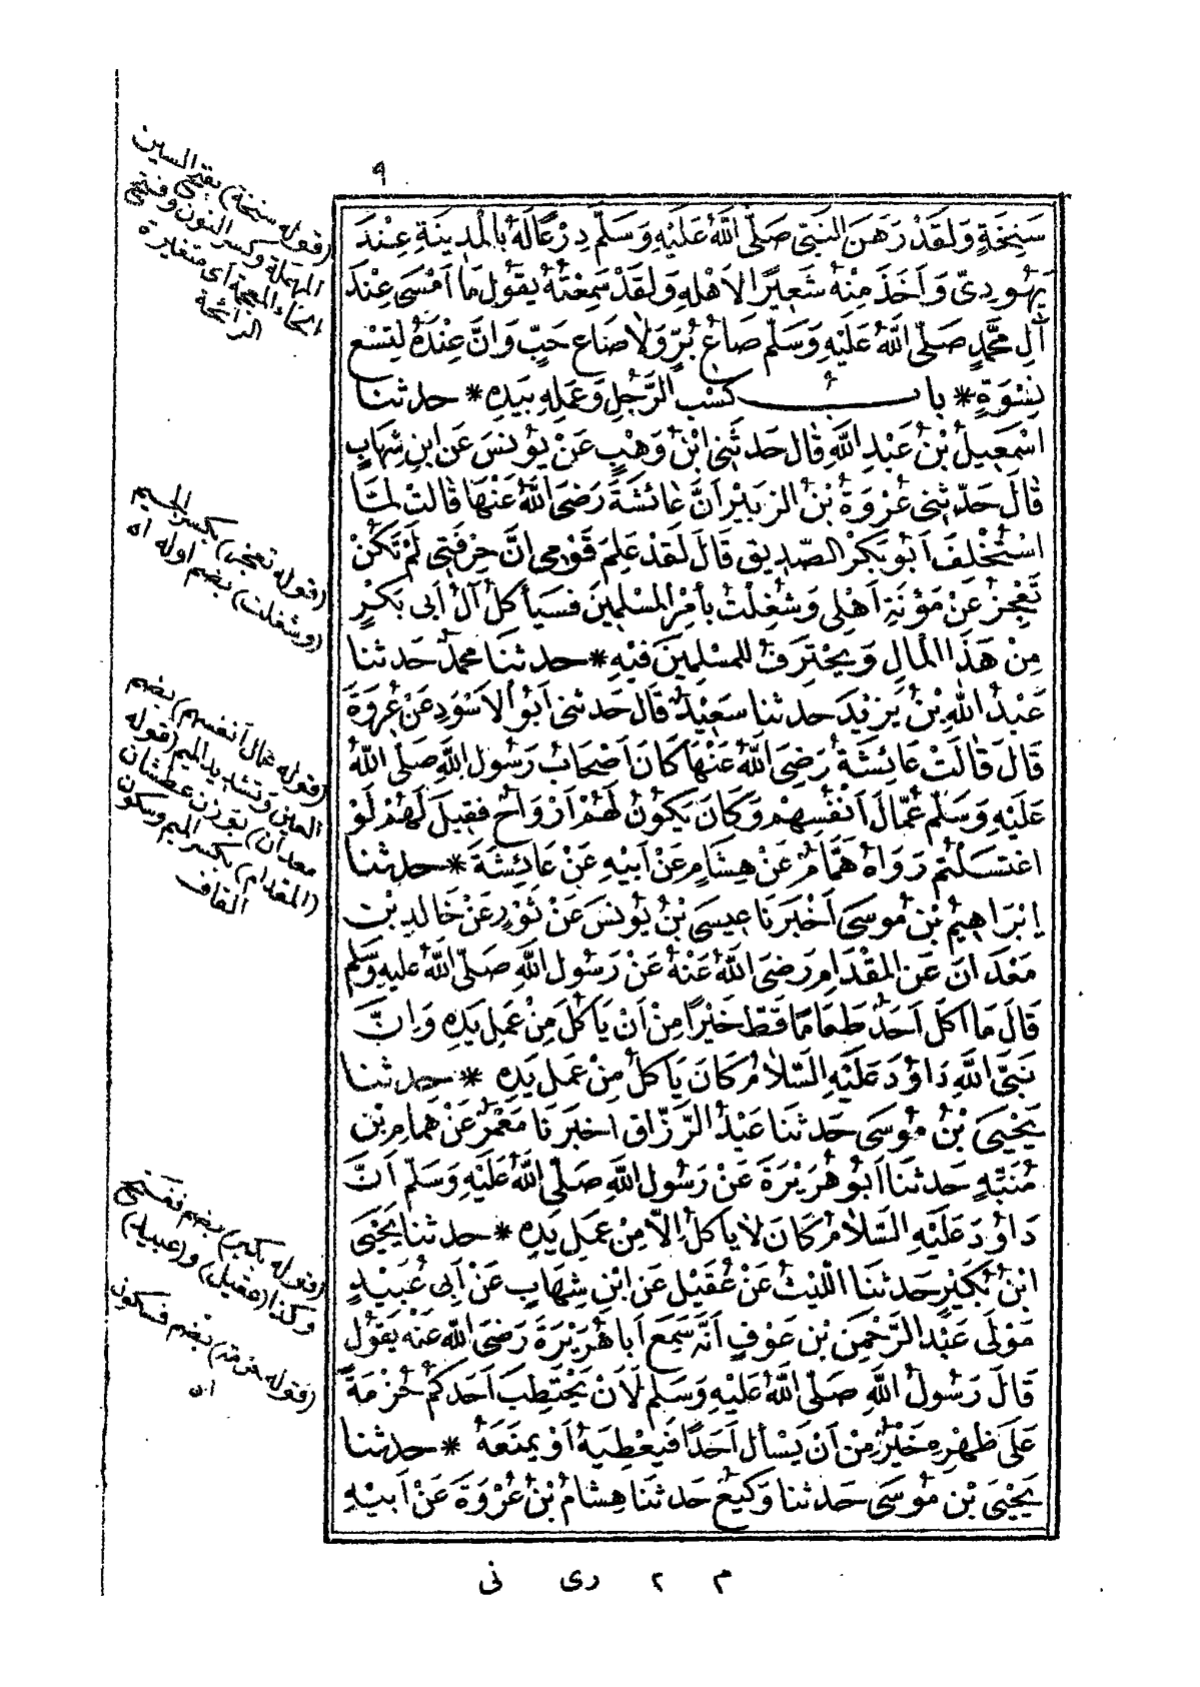 ٩
سَنِخَةٍ وَلَقَدْ رَهَنَ النَّبِيُّ صَلَّى اللَّهُ عَلَيْهِ وَسَلَّمَ دِرْعًا لَهُ بِالْمَدِينَةِ عِنْدَ
يَهُودِيٍّ وَأَخَذَ مِنْهُ شَعِيرًا لِأَهْلِهِ وَلَقَدْ سَمِعْتُهُ يَقُولُ مَا أَمْسَى عِنْدَ
آلِ مُحَمَّدٍ صَلَّى اللَّهُ عَلَيْهِ وَسَلَّمَ صَاعُ بُرٍّ وَلَا صَاعُ حَبٍّ وَإِنَّ عِنْدَهُ لَتِسْعَ
نِسْوَةٍ * باب كَسْبِ الرَّجُلِ وَعَمَلِهِ بِيَدِهِ * حدثنا
إِسْمَعِيلُ بْنُ عَبْدِ اللَّهِ قَالَ حَدثَنِي ابْنُ وَهْبٍ عَنْ يُونُسَ عَنِ ابْنِ شِهَابٍ
قَالَ حَدَّثَنِي عُرْوَةُ بْنُ الزُّبَيْرِ أَنَّ عَائِشَةَ رَضِيَ اللَّهُ عَنْهَا قَالَتْ لَمَّا
اسْتُخْلِفَ أَبُو بَكْرٍ الصِّدِّيقُ قَالَ لَقَدْ عَلِمَ قَوْمِي أَنَّ حِرْفَتِي لَمْ تَكُنْ
تَعْجِزُ عَنْ مَؤُنَةِ أَهْلِي وَشُغِلْتُ بِأَمْرِ الْمُسْلِمِينَ فَسَيَأْكُلُ آلُ أَبِي بَكْرٍ
مِنْ هَذَا الْمَالِ وَيَحْتَرِفُ لِلْمُسْلِمِينَ فِيهِ * حدثنَا مُحَمَّدٌ حَدثنَا
عَبْدُ اللَّهِ بْنُ يَزِيدَ حدثنا سَعِيدٌ قَالَ حَدثنِي أَبُو الْأَسْوَدِ عَنْ عُرْوَةَ
قَالَ قَالَتْ عَائِشَةُ رَضِيَ اللَّهُ عَنْهَا كَانَ أَصْحَابُ رَسُولِ اللَّهِ صَلَّى اللَّهُ
عَلَيْهِ وَسَلَّمَ عُمَّالَ أَنْفُسِهِمْ وَكَانَ يَكُونُ لَهُمْ أَرْوَاحٌ فَقِيلَ لَهُمْ لَوِ
اغْتَسَلْتُمْ رَوَاهُ هَمَّامٌ عَنْ هِشَامٍ عَنْ أَبِيهِ عَنْ عَائِشَةَ * حدثنا
إِبْرَاهِيمُ بْنُ مُوسَى أَخْبَرَنَا عِيسَى بْنُ يُونُسَ عَنْ ثَوْرٍ عَنْ خَالِدِ بْنِ
مَعْدَانَ عَنِ الْمِقْدَامِ رَضِيَ اللَّهُ عَنْهُ عَنْ رَسُولِ اللَّهِ صَلَّى اللَّهُ عَلَيْهِ وَسَلَّمَ
قَالَ مَا أَكَلَ أَحَدٌ طَعَامًا قَطُّ خَيْرًا مِنْ أَنْ يَأْكُلَ مِنْ عَمَلِ يَدِهِ وَإِنَّ
نَبِيَّ اللَّهِ دَاوُدَ عَلَيْهِ السَّلَامُ كَانَ يَأْكُلُ مِنْ عَمَلِ يَدِهِ * حدثنا
يَحْيَى بْنُ مُوسَى حَدثنَا عَبْدُ الرَّزَّاقِ أَخْبَرَنَا مَعْمَرٌ عَنْ هَمَّامِ بْنِ
مُنَبِّهٍ حَدثنَا أَبُو هُرَيْرَةَ عَنْ رَسُولِ اللَّهِ صَلَّى اللَّهُ عَلَيْهِ وَسَلَّمَ أَنَّ
دَاوُدَ عَلَيْهِ السَّلَامُ كَانَ لَا يَأْكُلُ إِلَّا مِنْ عَمَلِ يَدِهِ * حدثنا يَحْيَى
ابْنُ بُكَيْرٍ حَدثنَا اللَّيْثُ عَنْ عُقَيْلٍ عَنِ ابْنِ شِهَابٍ عَنْ أَبِي عُبَيْدٍ
مَوْلَى عَبْدِ الرَّحْمَنِ بْنِ عَوْفٍ أَنَّهُ سَمِعَ أَبَا هُرَيْرَةَ رَضِيَ اللَّهُ عَنْهُ يَقُولُ
قَالَ رَسُولُ اللَّهِ صَلَّى اللَّهُ عَلَيْهِ وَسَلَّمَ لَأَنْ يَحْتَطِبَ أَحَدُكُمْ حُزْمَةً
عَلَى ظَهْرِهِ خَيْرٌ مِنْ أَنْ يَسْأَلَ أَحَدًا فَيُعْطِيَهُ أَوْ يَمْنَعَهُ * حدثنا
يَحْيَى بْنُ مُوسَى حَدثنا وَكِيعٌ حَدثنَا هِشَامُ بْنُ عُرْوَةَ عَنْ أَبِيهِ
(قوله سنخة) بفتح السين
المهملة وكسر النون وفتح
الخاء المعجمة أى متغيرة
الرائحة
(قوله تعجز) بكسر الجيم
(وشغلت) بضم اوله اه
(قوله عمال أنفسهم) بضم
العين وتشديد الميم (قوله
معدان) بوزن عطشان
(المقدام) بكسر الميم وسكون
القاف
(قوله بكير) بضم ففتح
وكذا (عقيل) و(عبيد)
(قوله حزمة) بضم فسكون
اه
م ٢ رى نى